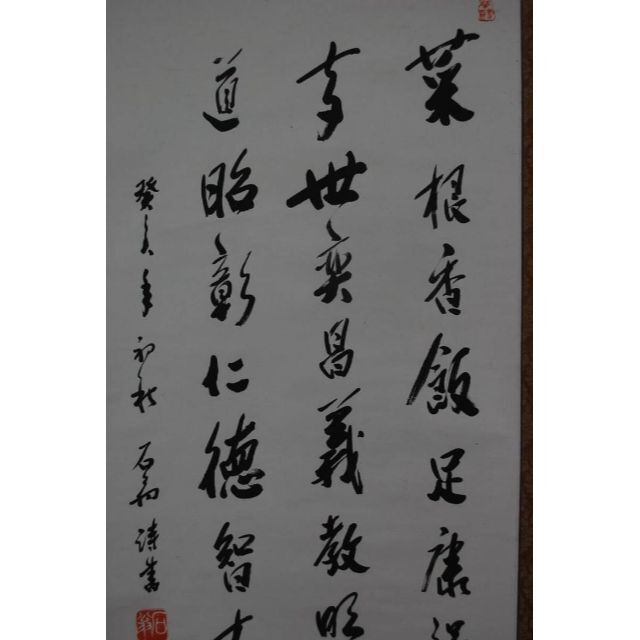 菜根香飯足康
孝世奕昌義教明
道昭彰仁德智
癸亥年初秋石翁詩書
石翁